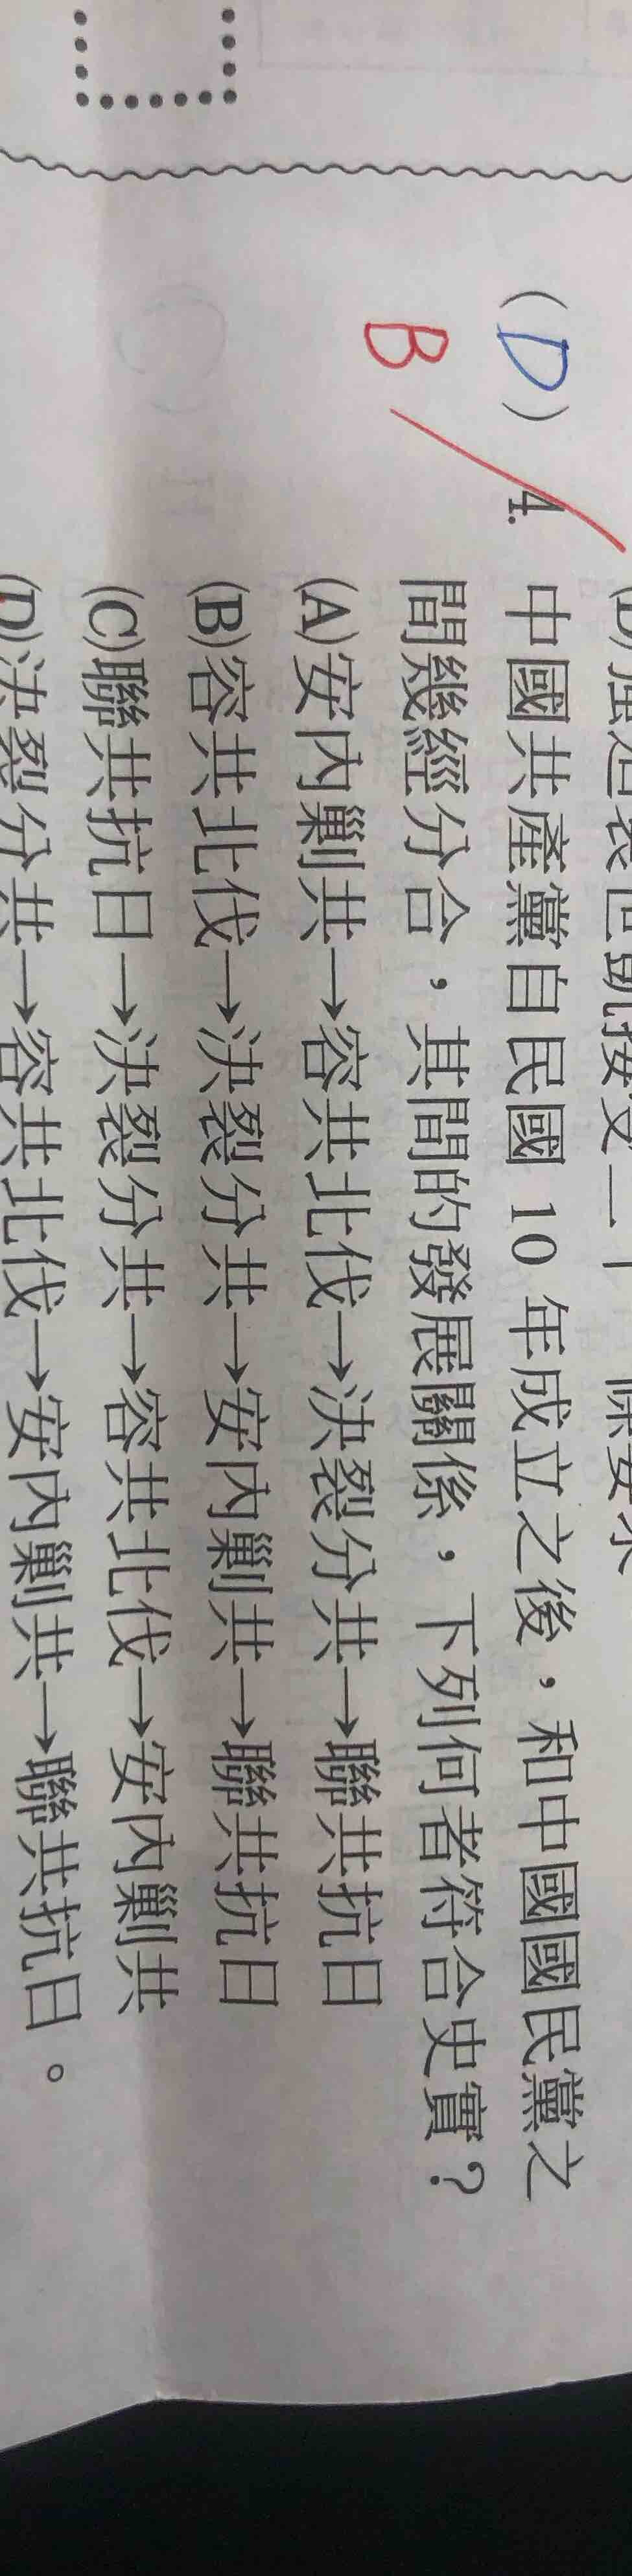 (D) 4. 中國共產黨自民國 10 年成立之後，和中國國民黨之
B 間幾經分合，其間的發展關係，下列何者符合史實？
(A)安內剿共→容共北伐→決裂分共→聯共抗日
(B)容共北伐→決裂分共→安內剿共→聯共抗日
(C)聯共抗日→決裂分共→容共北伐→安內剿共
(D)決裂分共→容共北伐→安內剿共→聯共抗日。